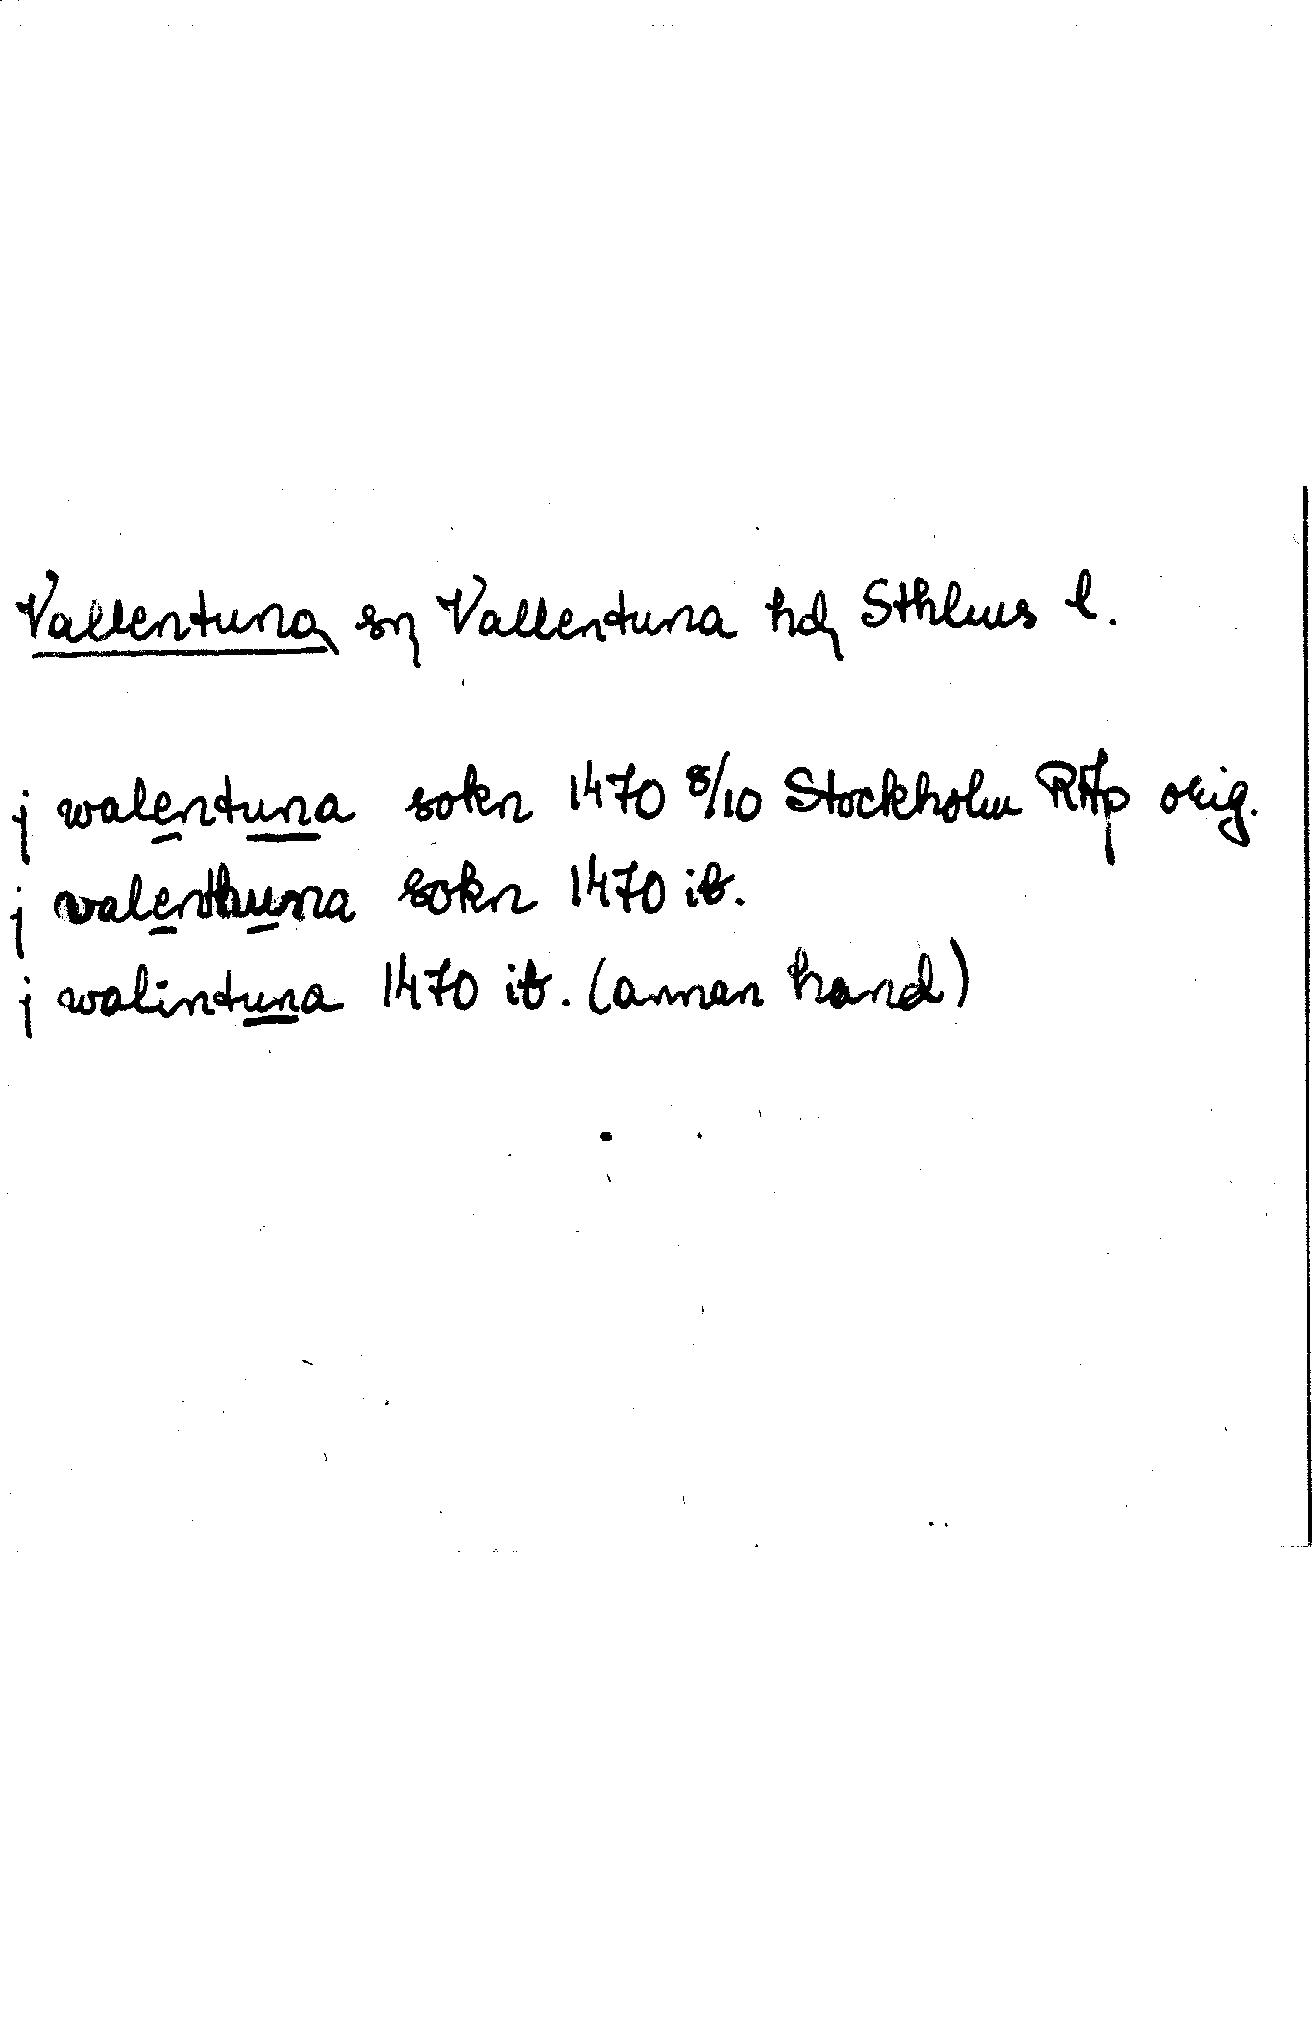 Vallentuna, sn, Vallentuna hd, Sthlms l.
j walentuna sokn 1470 8/10 Stockholm RAp orig.
j valenthuna sokn 1470 ib.
j walintuna 1470 ib. (annan hand)